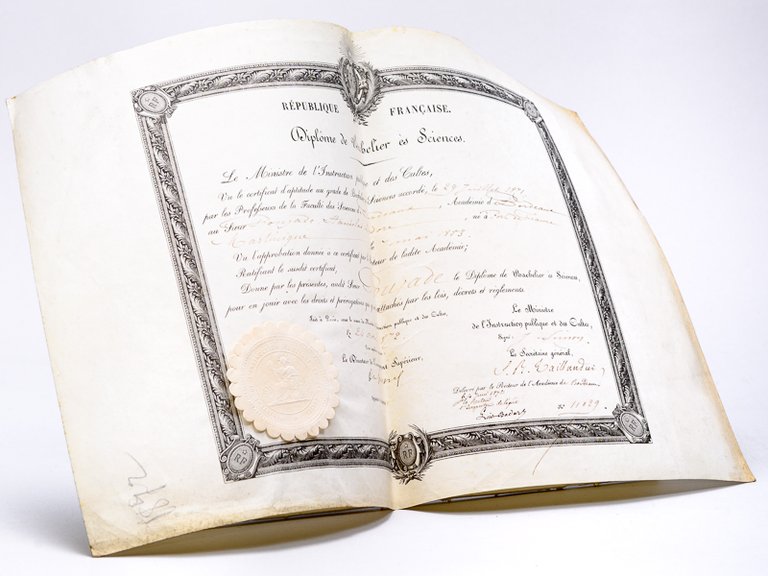 RÉPUBLIQUE FRANÇAISE.
Diplôme de Bachelier ès Sciences.
Le Ministre de l'Instruction publique et des Cultes,
Vu le certificat d'aptitude au grade de Bachelier ès Sciences accordé, le 29 Juillet 1871
par les Professeurs de la Faculté des Sciences de Bordeaux, Académie d Bordeaux
au Sieur Pouyade né à
Martinique le mai 1853
Vu l'approbation donnée à ce certificat par le Recteur de ladite Académie;
Ratifiant le susdit certificat,
Donne par les présentes, audit Sieur Pouyade le Diplôme de Bachelier ès Sciences,
pour en jouir avec les droits et prérogatives qui y sont attachés par les lois, décrets et règlements.
Fait à Paris, sous le sceau du Ministère de l'Instruction publique et des Cultes,
Le Ministre
de l'Instruction publique et des Cultes,
Signé J. Simon
Le Secrétaire général,
Délivré par le Recteur de l'Académie de Bordeaux
Nº 11039
RF
RF
RF
1872